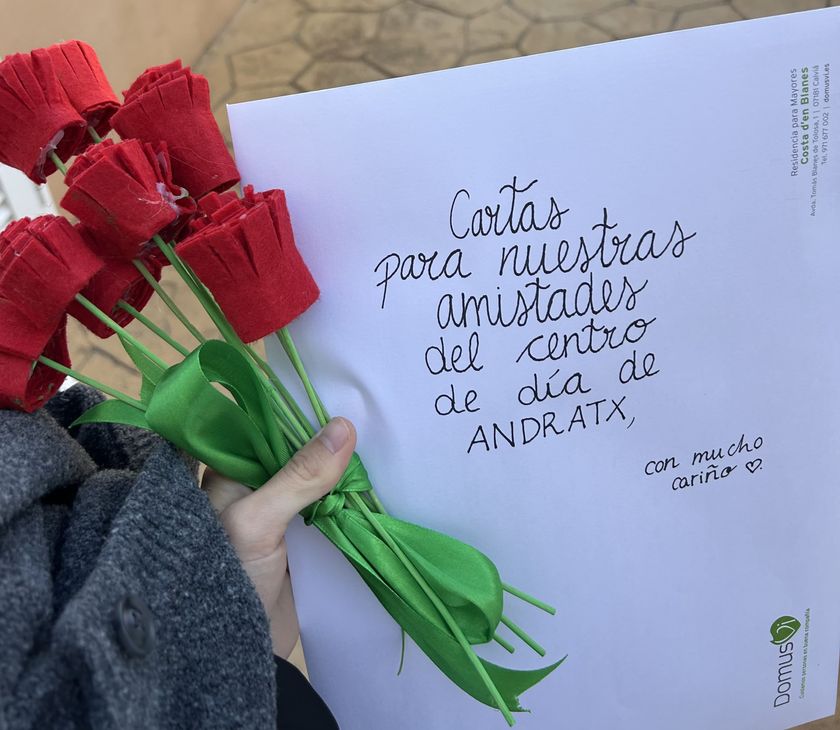 Cartas
para nuestras
amistades
del centro
de día de
ANDRATX,
con mucho
cariño ♡.
Residencia para Mayores
Costa d'en Blanes
Avda. Tomás Blanes de Tolosa, 1 | 07181 Calvià
Tel. 971 677 002 | domusvi.es
DomusVi
Cuidamos personas en buena compañía